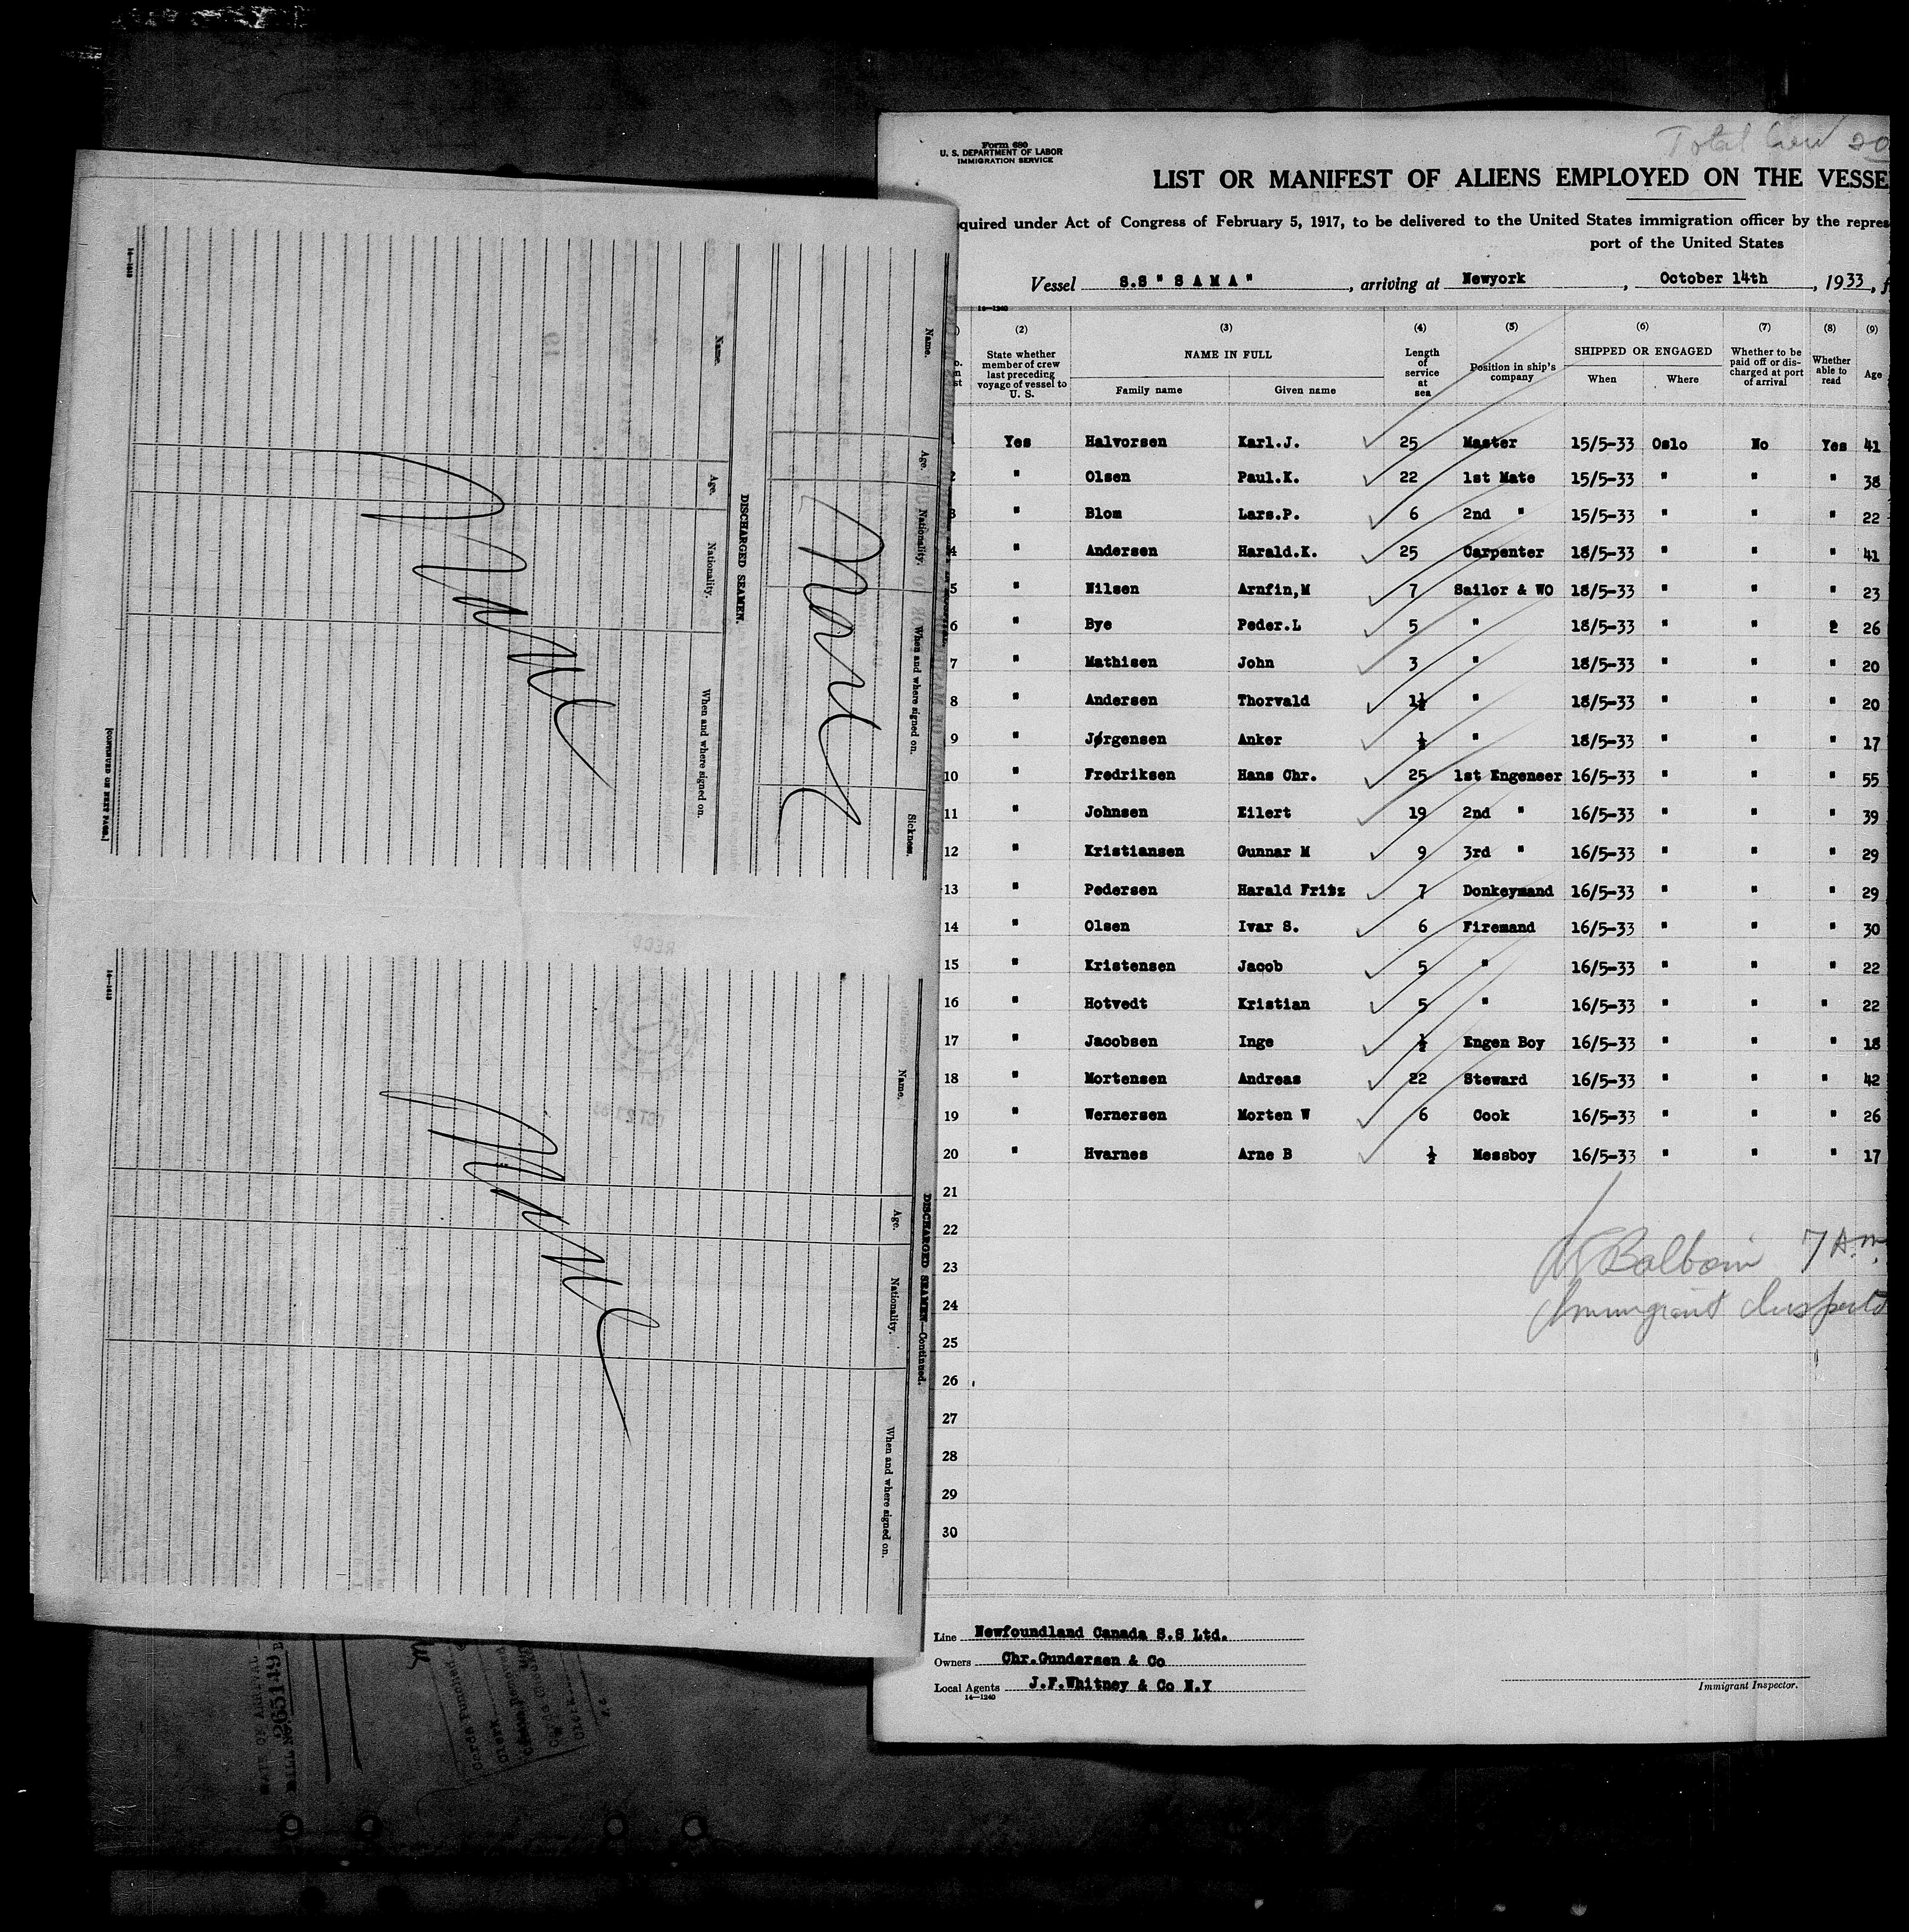 Total Crew 20
Form 680
U. S. DEPARTMENT OF LABOR
IMMIGRATION SERVICE
LIST OR MANIFEST OF ALIENS EMPLOYED ON THE VESSE
quired under Act of Congress of February 5, 1917, to be delivered to the United States immigration officer by the repres
port of the United States
Vessel S.S " S A M A " , arriving at Newyork , October 14th , 1933, f
14—1240
(2) (3) (4) (5) (6) (7) (8) (9)
State whether member of crew last preceding voyage of vessel to U. S. NAME IN FULL Length of service at sea Position in ship's company SHIPPED OR ENGAGED Whether to be paid off or dis-charged at port of arrival Whether able to read Age
Family name Given name When Where
1 Yes Halvorsen Karl.J. 25 Master 15/5-33 Oslo No Yes 41
2 " Olsen Paul.K. 22 1st Mate 15/5-33 " " " 38
3 " Blom Lars.P. 6 2nd " 15/5-33 " " " 22
4 " Andersen Harald.K. 25 Carpenter 18/5-33 " " " 41
5 " Nilsen Arnfin,M 7 Sailor & WO 18/5-33 " " " 23
6 " Bye Peder.L 5 " 18/5-33 " " 26
7 " Mathisen John 3 " 18/5-33 " " " 20
8 " Andersen Thorvald 1½ " 18/5-33 " " " 20
9 " Jørgensen Anker ½ " 18/5-33 " " " 17
10 " Fredriksen Hans Chr. 25 1st Engeneer 16/5-33 " " " 55
11 " Johnsen Eilert 19 2nd " 16/5-33 " " " 39
12 " Kristiansen Gunnar M 9 3rd " 16/5-33 " " " 29
13 " Pedersen Harald Fritz 7 Donkeymand 16/5-33 " " " 29
14 " Olsen Ivar S. 6 Firemand 16/5-33 " " " 30
15 " Kristensen Jacob 5 " 16/5-33 " " " 22
16 " Hotvedt Kristian 5 " 16/5-33 " " " 22
17 " Jacobsen Inge ½ Engen Boy 16/5-33 " " " 18
18 " Mortensen Andreas 22 Steward 16/5-33 " " " 42
19 " Wernersen Morten W 6 Cook 16/5-33 " " " 26
20 " Hvarnes Arne B ½ Messboy 16/5-33 " " " 17
21
22
23
24
25
26
27
28
29
30
Balboin 7 A.m.
Immigrant Inspecto
Line Newfoundland Canada S.S Ltd.
Owners Chr.Gundersen & Co
Local Agents J.F.Whitney & Co N.Y
14—1240
Immigrant Inspector.
Name. Age. Nationality. When and where signed on. Sickness.
None
DISCHARGED SEAMEN.
Name. Age. Nationality. When and where signed on.
None
14—1613
[CONTINUED ON NEXT PAGE.]
DISCHARGED SEAMEN—Continued.
Name. Age. Nationality. When and where signed on.
None
14—1613
DATE OF ARRIVAL
265149
Cards Punched
Clerk